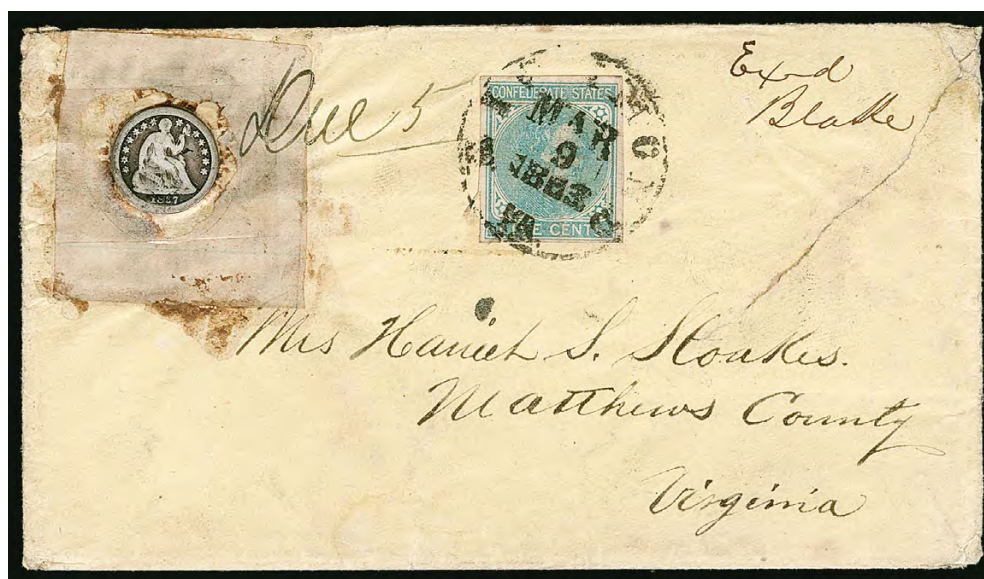 Exd
Blake
Due 5
CONFEDERATE STATES
MAR
9
1863
FIVE CENTS
1857
Mrs Harriet S. Stoakes.
Matthews County
Virginia